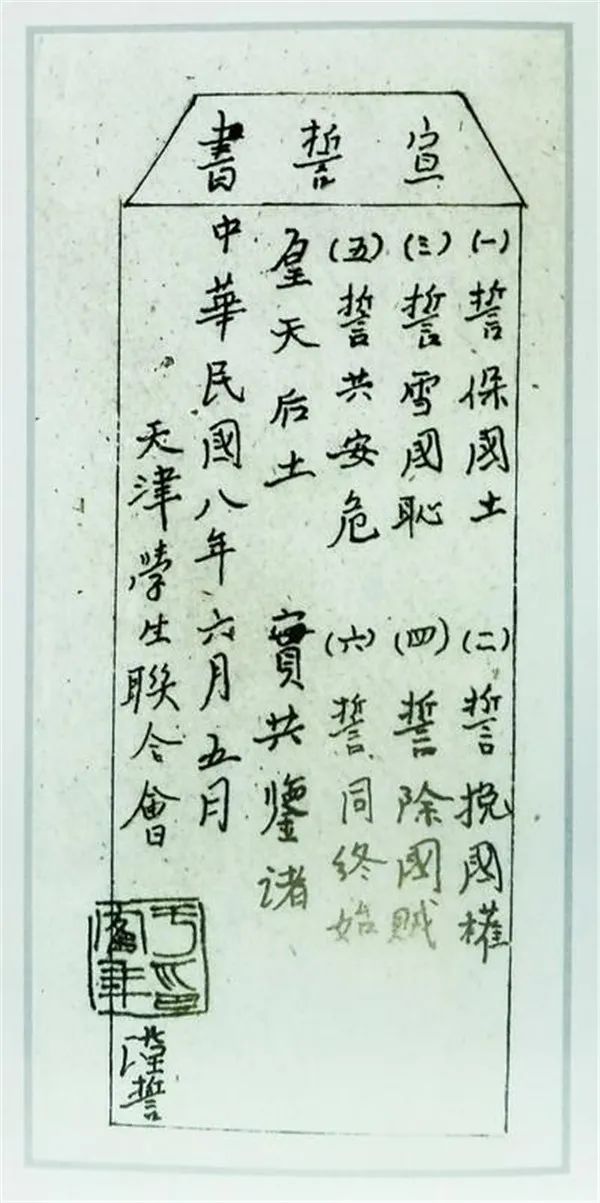 宣誓書
(一)誓保國土 (二)誓挽國權
(三)誓雪國恥 (四)誓除國賊
(五)誓共安危 (六)誓同終始
皇天后土 實共鑒諸
中華民國八年六月五月
天津學生聯合會
謹誓